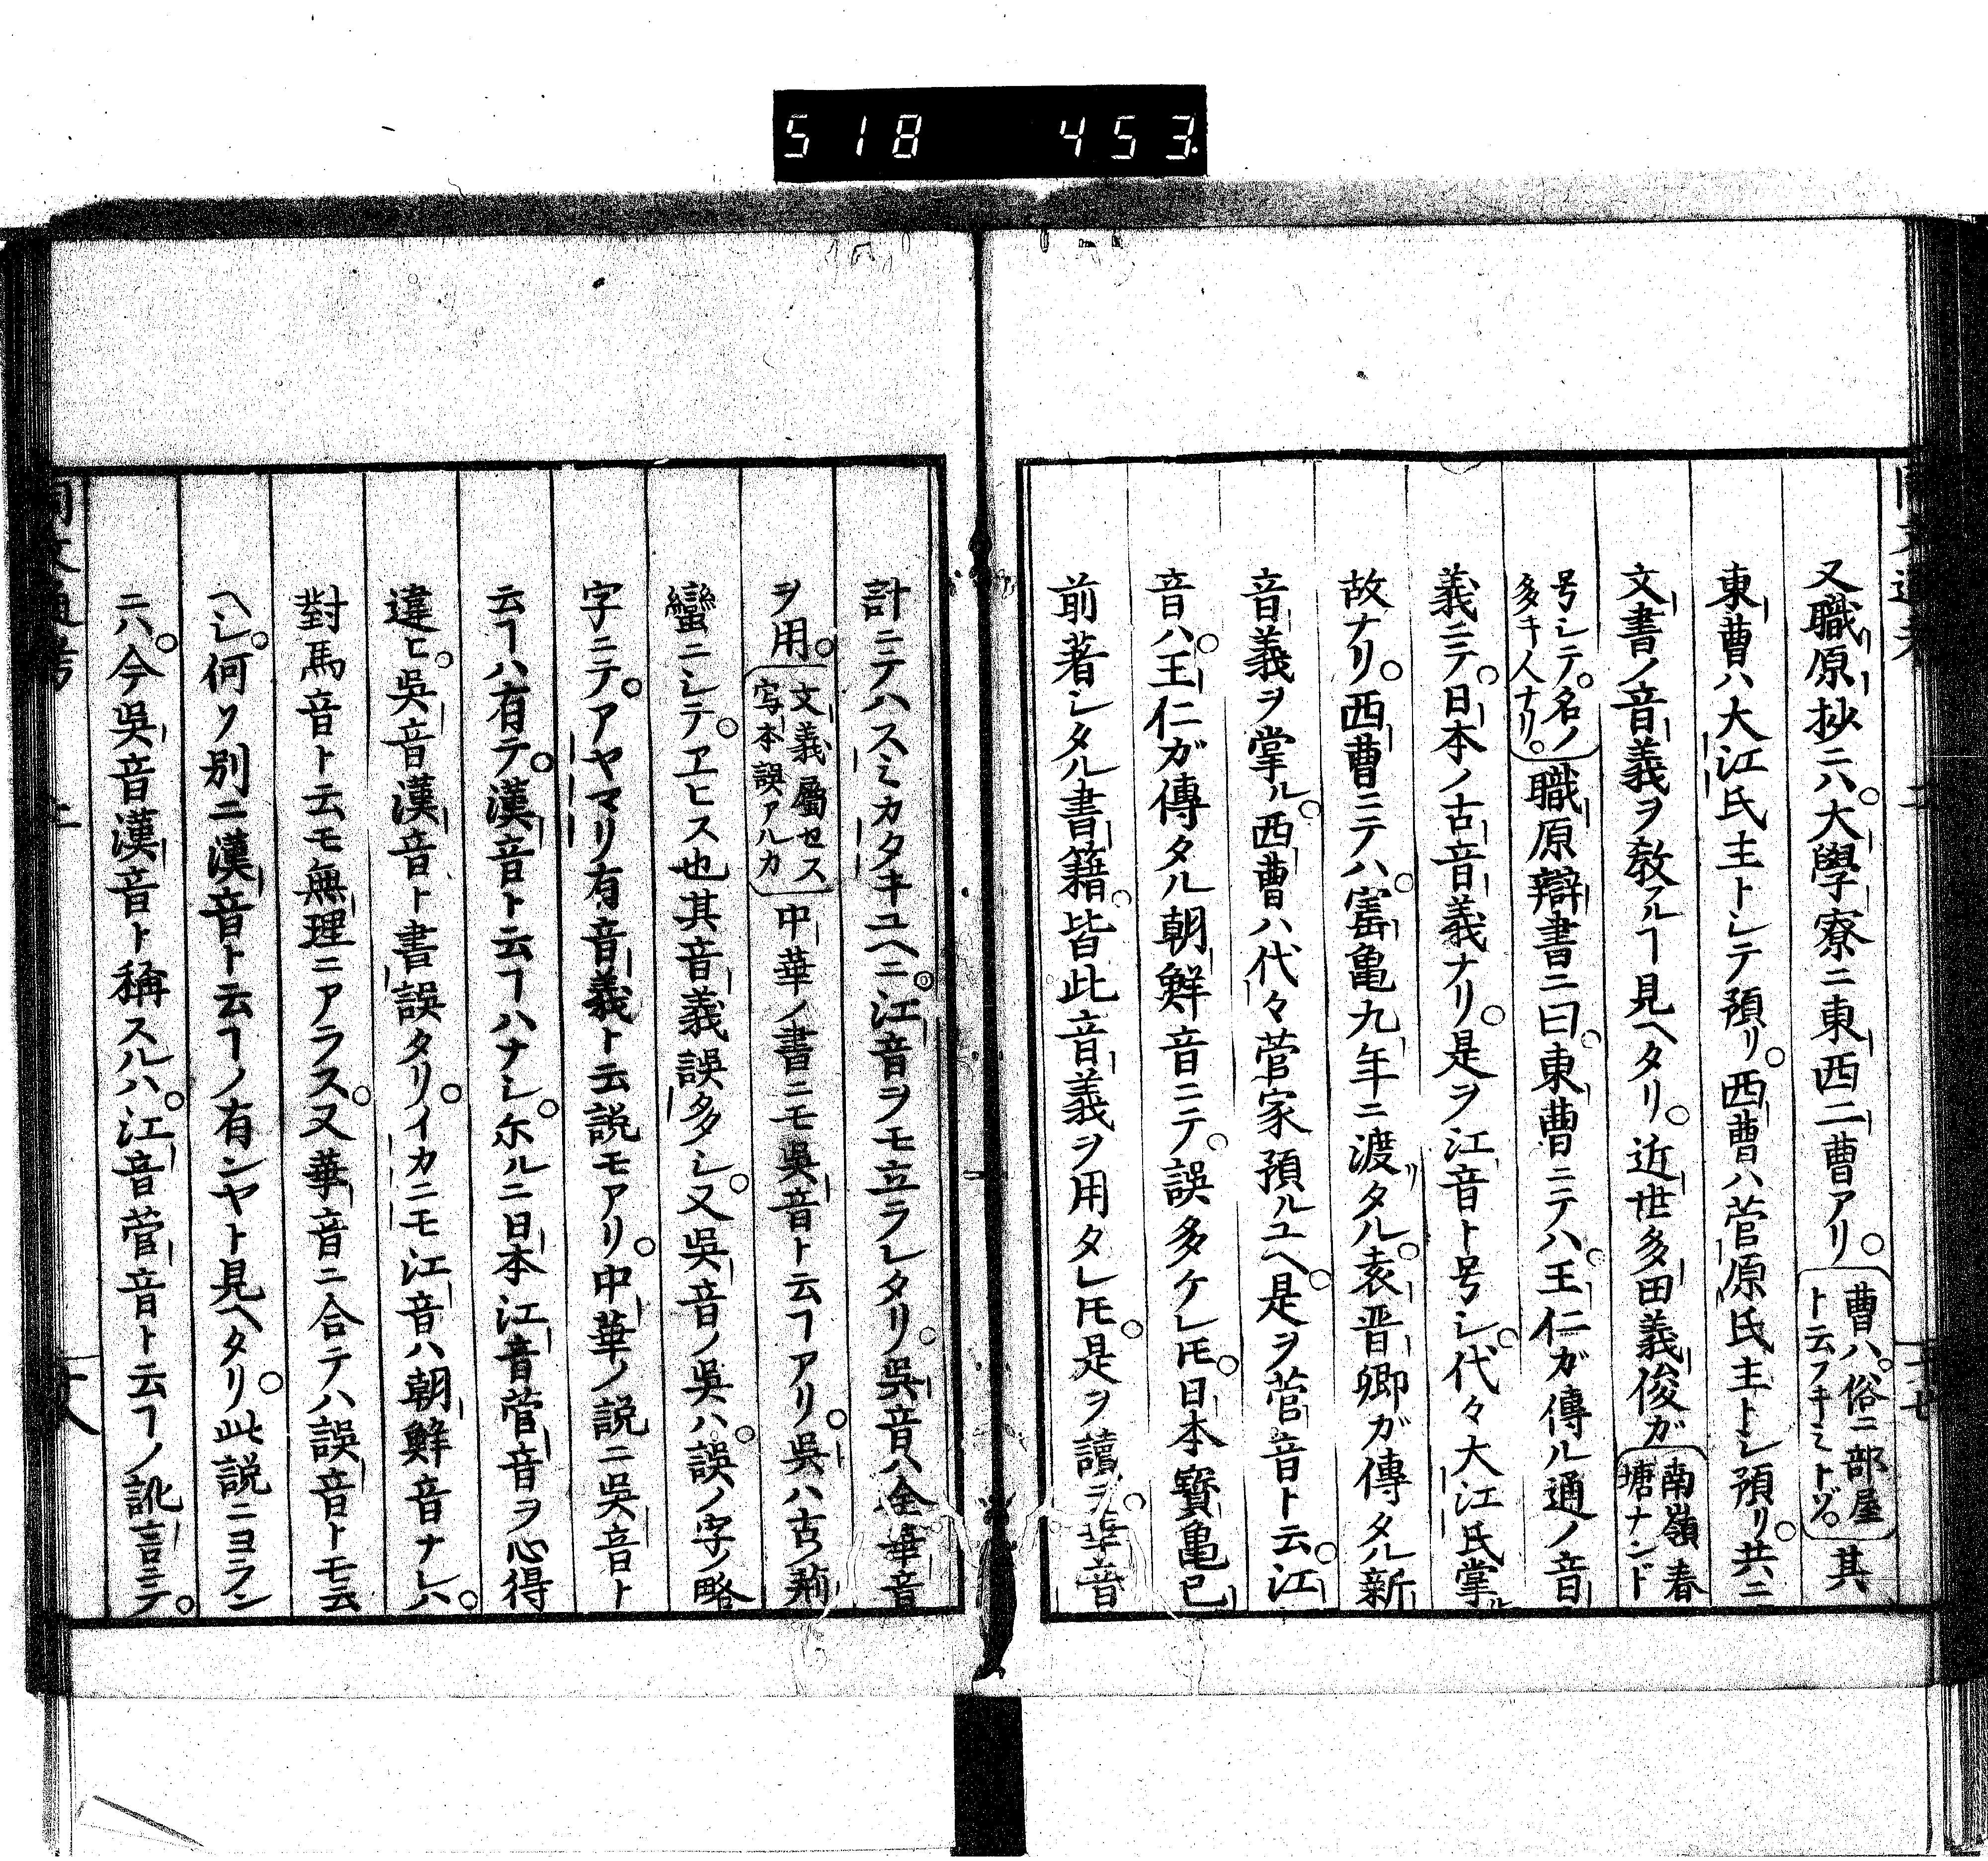 518 453.
又職原抄ニハ。大學寮ニ東西二曹アリ。曹ハ。俗ニ部屋ト云フキミトゾ。其
東曹ハ大江氏主トシテ預リ。西曹ハ菅原氏主トシ預リ。共ニ
文書ノ音義ヲ敎フルヿ見ヘタリ。近世多田義俊ガ南嶺春塘ナンド
号シテ。名ノ多キ人ナリ。職原辯書ニ曰。東曹ニテハ。王仁ガ傳ル通ノ音
義ニテ。日本ノ古音義ナリ。是ヲ江音ト号シ。代々大江氏掌ル
故ナリ。西曹ニテハ。寳亀九年ニ渡リタル。袁晋卿ガ傳タル新
音義ヲ掌ル。西曹ハ代々菅家預ルユヘ。是ヲ菅音ト云。江
音ハ。王仁ガ傳タル朝鮮音ニテ。誤多ケレ𪜈。日本寳亀已
前著シタル書籍。皆此音義ヲ用タレ𪜈。是ヲ讀ヲ。華音
計ニテハスミカタキユヘニ。江音ヲモ立ラレタリ。呉音ハ全華音
ヲ用。文義屬セス写本誤アルカ中華ノ書ニモ呉音ト云ヿアリ。呉ハ古ノ荊
蠻ニシテ。ヱヒス也其音義誤多シ。又呉音ノ呉ハ。誤ノ字ノ略
字ニテ。アヤマリ有音義ト云説モアリ。中華ノ説ニ呉音ト
云ヿハ有テ。漢音ト云ヿハナシ。尓ルニ日本江音菅音ヲ心得
違ヒ。呉音漢音ト書誤タリ。イカニモ江音ハ朝鮮音ナレハ。
對馬音ト云モ無理ニアラス。又華音ニ合テハ誤音トモ云
ヘシ。何ソ別ニ漢音ト云ヿノ有ンヤト見ヘタリ。此説ニヨラン
ニハ。今呉音漢音ト稱スルハ。江音菅音ト云ヿノ訛言ニテ。
同文通考